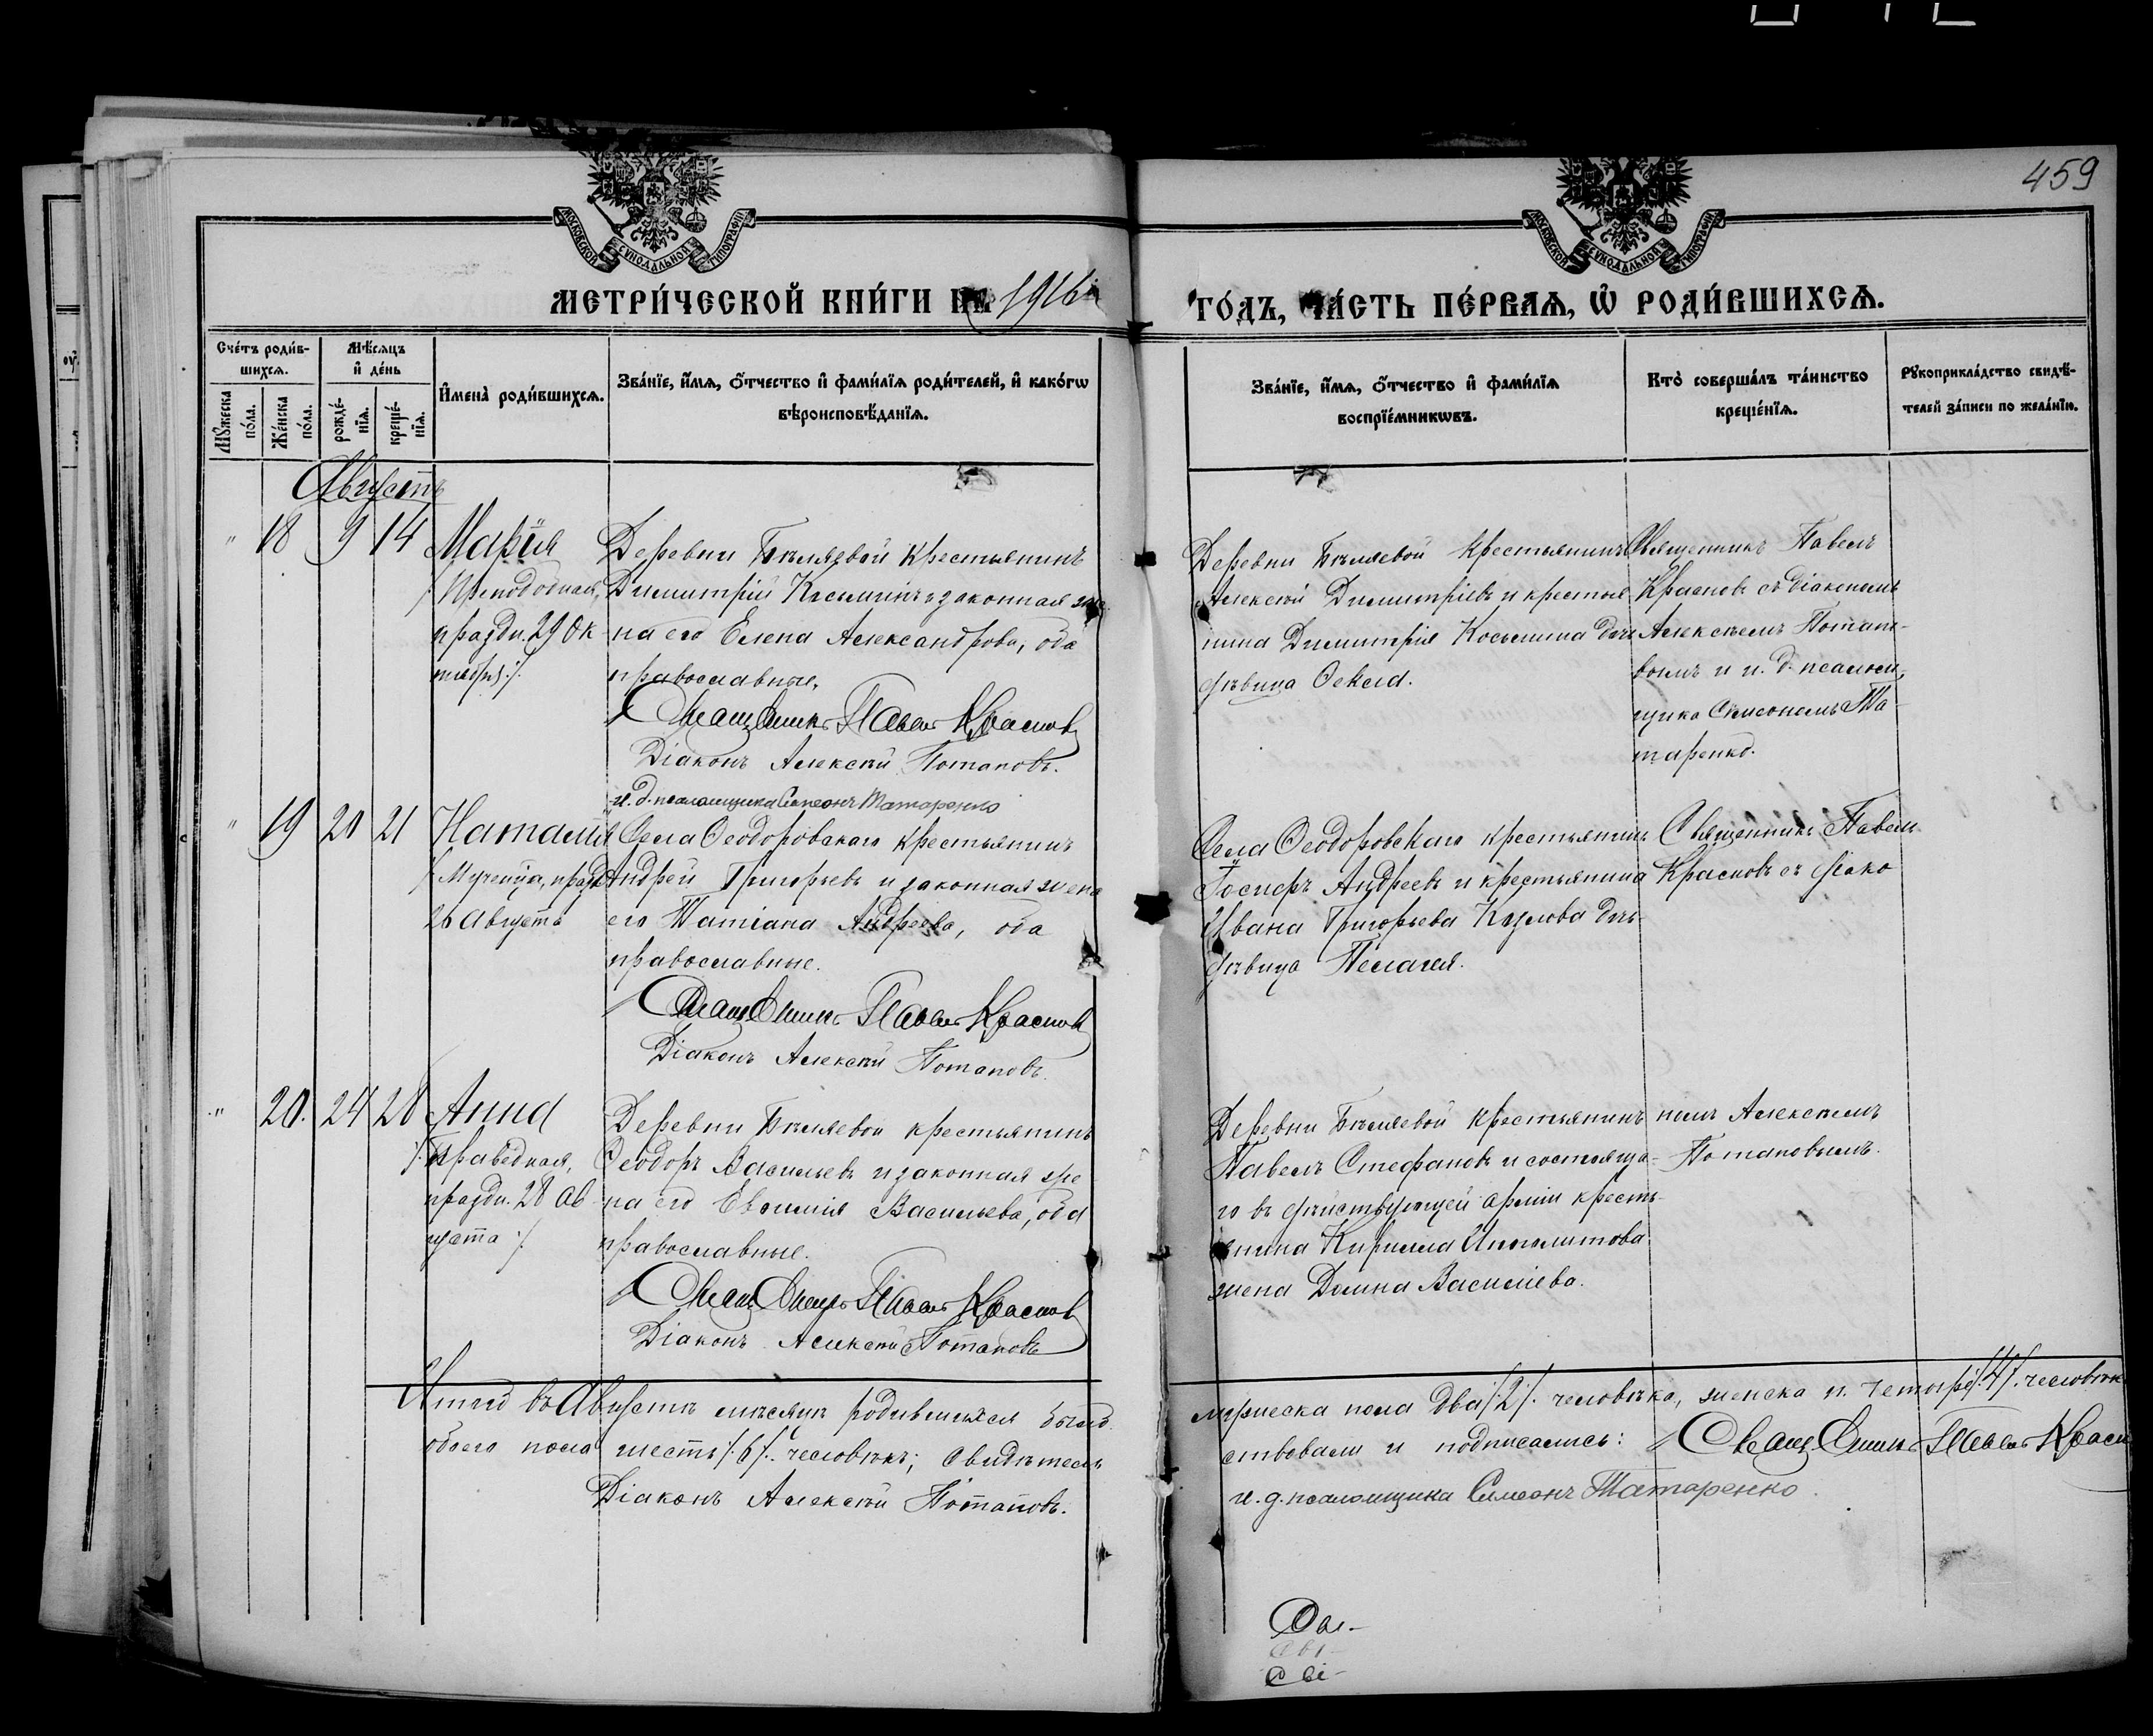 459
МОСКОВСКОЙ СѴНОДАЛЬНОЙ ТИПОГРАФІИ
МОСКОВСКОЙ СѴНОДАЛЬНОЙ ТИПОГРАФІИ
МЕТРИ́ЧЕСКОЙ КНИ́ГИ НА 1916й
ГО́ДЪ, ЧА́СТЬ ПЕ́РВАѦ, Ѡ҆ РОДИ́ВШИХСѦ.
Сче́тъ роди́в-
шихсѧ.
Мꙋжеска по́ла.
Же́нска по́ла.
Мѣ́сѧцъ
и҆ де́нь
рожде́-
нїѧ.
креще́-
нїѧ.
И҆мена̀ роди́вшихсѧ.
Зва́нїе, и҆́мѧ, ѻ҆́тчество и҆ фами́лїѧ роди́телей, и҆ како́гѡ
вѣроисповѣ́данїѧ.
Зва́нїе, и҆́мѧ, ѻ҆́тчество и҆ фами́лїѧ
воспрїе́мникѡвъ.
Кто̀ соверша́лъ та́инство
креще́нїѧ.
Рꙋкоприкла́дство свидѣ́-
телей за́писи по жела́нїю.
Августъ
" 18 9 14
Марія
Преподобная,
праздн. 29 Ок
тября ⁒
Деревни Бѣляевой крестьянинъ
Димитрій Косьминъ и законная же
на его Елена Александрова, оба
православные.
Священникъ Павелъ Красновъ
Діаконъ Алексѣй Потаповъ.
и. д. псаломщика Симеонъ Татаренко
Деревни Бѣляевой крестьянинъ
Алексѣй Димитріевъ и крестья
нина Димитрія Косьмина дочь
дѣвица Ѳекла.
Священникъ Павелъ
Красновъ съ діакономъ
Алексѣемъ Потапо-
вымъ и и. д. псаломщика
Симеономъ Та
таренко.
" 19 20 21
Наталія
Мученица, празд
26 Августа
Села Ѳеодоровскаго крестьянинъ
Андрей Григорьевъ и законная жена
его Татіана Андреева, оба
православные.
Священникъ Павелъ Красновъ
Діаконъ Алексѣй Потаповъ.
Села Ѳеодоровскаго крестьянинъ
Іосифъ Андреевъ и крестьянина
Ивана Григорьева Козлова дочь
дѣвица Пелагея.
Священникъ Павелъ
Красновъ съ діако
" 20. 24 28
Анна
⁒ Праведная,
праздн. 28 Ав
густа ⁒
Деревни Бѣляевой крестьянинъ
Ѳеодоръ Васильевъ и законная же
на его Евѳимія Васильева, оба
православные.
Священникъ Павелъ Красновъ
Діаконъ Алексѣй Потаповъ
Деревни Бѣляевой крестьянинъ
Павелъ Стефановъ и состояща-
го въ дѣйствующей арміи кресть
янина Кирилла Ипполитова
жена Домна Васильева.
номъ Алексѣемъ
Потаповымъ.
Итого въ Августѣ мѣсяцѣ родившихся было
мужеска пола два ⁒ 2 ⁒ человѣка, женска п. четыре ⁒ 4 ⁒ человѣка
обоего пола шесть ⁒ 6 ⁒ человѣкъ; свидѣтель
ствовали и подписались: Священникъ Павелъ Красн
Діаконъ Алексѣй Потаповъ.
и. д. псаломщика Симеонъ Татаренко.